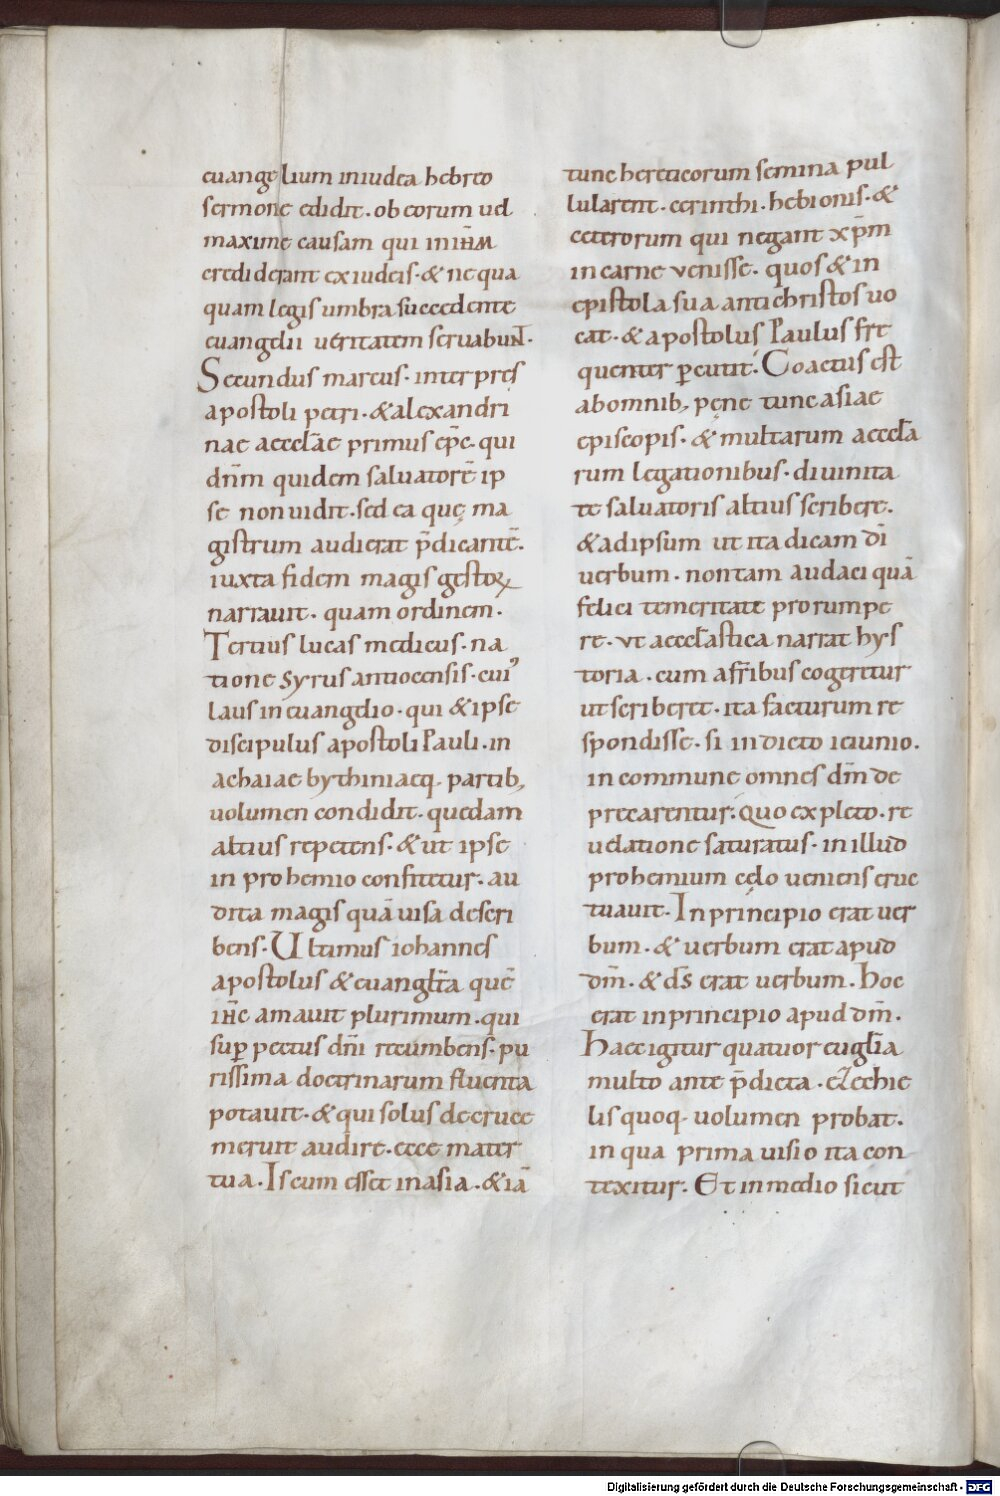 euangelium iniudea hebreo
sermone edidit. ob eorum uel
maxime causam qui in ihm̄
crediderant exiudeis. & ne qua
quam legis umbra succedente
euangelii ueritatem seruabunt.
Secundus marcus. interpres
apostoli petri. & alexandri
nae aeccl̄ae primus ep̄c. qui
dn̄m quidem saluatorē ip
se non uidit. sed ea quę ma
gistrum audierat p̄dicantē.
iuxta fidem magis gestoꝝ
narrauit. quam ordinem.
Tertius lucas medicus. na
tione syrus antiocensis. cuiꝰ
laus in euangelio. qui & ipse
discipulus apostoli Pauli. in
achaiae bythiniaeq. partib,
uolumen condidit. quedam
altius repetens. & ut ipse
in prohemio confitetur. au
dita magis quā uisa descri
bens. Ultimus iohannes
apostolus & euangl̄ta quē
ihc̄ amauit plurimum. qui
suꝑ pectus dn̄i recumbens. pu
rissima doctrinarum fluenta
potauit. & qui solus de cruce
meruit audire. ecce mater
tua. Is cum esset in asia. & iā
tunc hereticorum semina pul
lularent. cerinthi. hebionis. &
ceterorum qui negant xp̄m
in carne venisse. quos & in
epistola sua antichristos uo
cat. & apostolus Paulus fre
quenter ꝑcutit. Coactus est
ab omnib, pene tunc asiae
episcopis. & multarum aeccl̄a
rum legationibus. diuinita
te saluatoris altius scribere.
& ad ipsum ut ita dicam dī
uerbum. non tam audaci quā
felici temeritate prorumpe
re. vt aeccl̄astica narrat hys
toria. cum afr̄ibus cogeretur
ut scriberet. ita facturum re
spondisse. si indicto ieiunio.
in commune omnes dm̄ de
precarentur. Quo expleto. re
uelatione saturatus. in illud
prohemium cęlo ueniens eruc
tauit. In principio erat uer
bum. & uerbum erat apud
dm̄. & ds̄ erat uerbum. Hoc
erat in principio apud dm̄.
Haec igitur quatuor eugl̄ia
multo ante p̄dicta. ezechie
lis quoq. uolumen probat.
in qua prima uisio ita con
texitur. Et in medio sicut
Digitalisierung gefördert durch die Deutsche Forschungsgemeinschaft - DFG